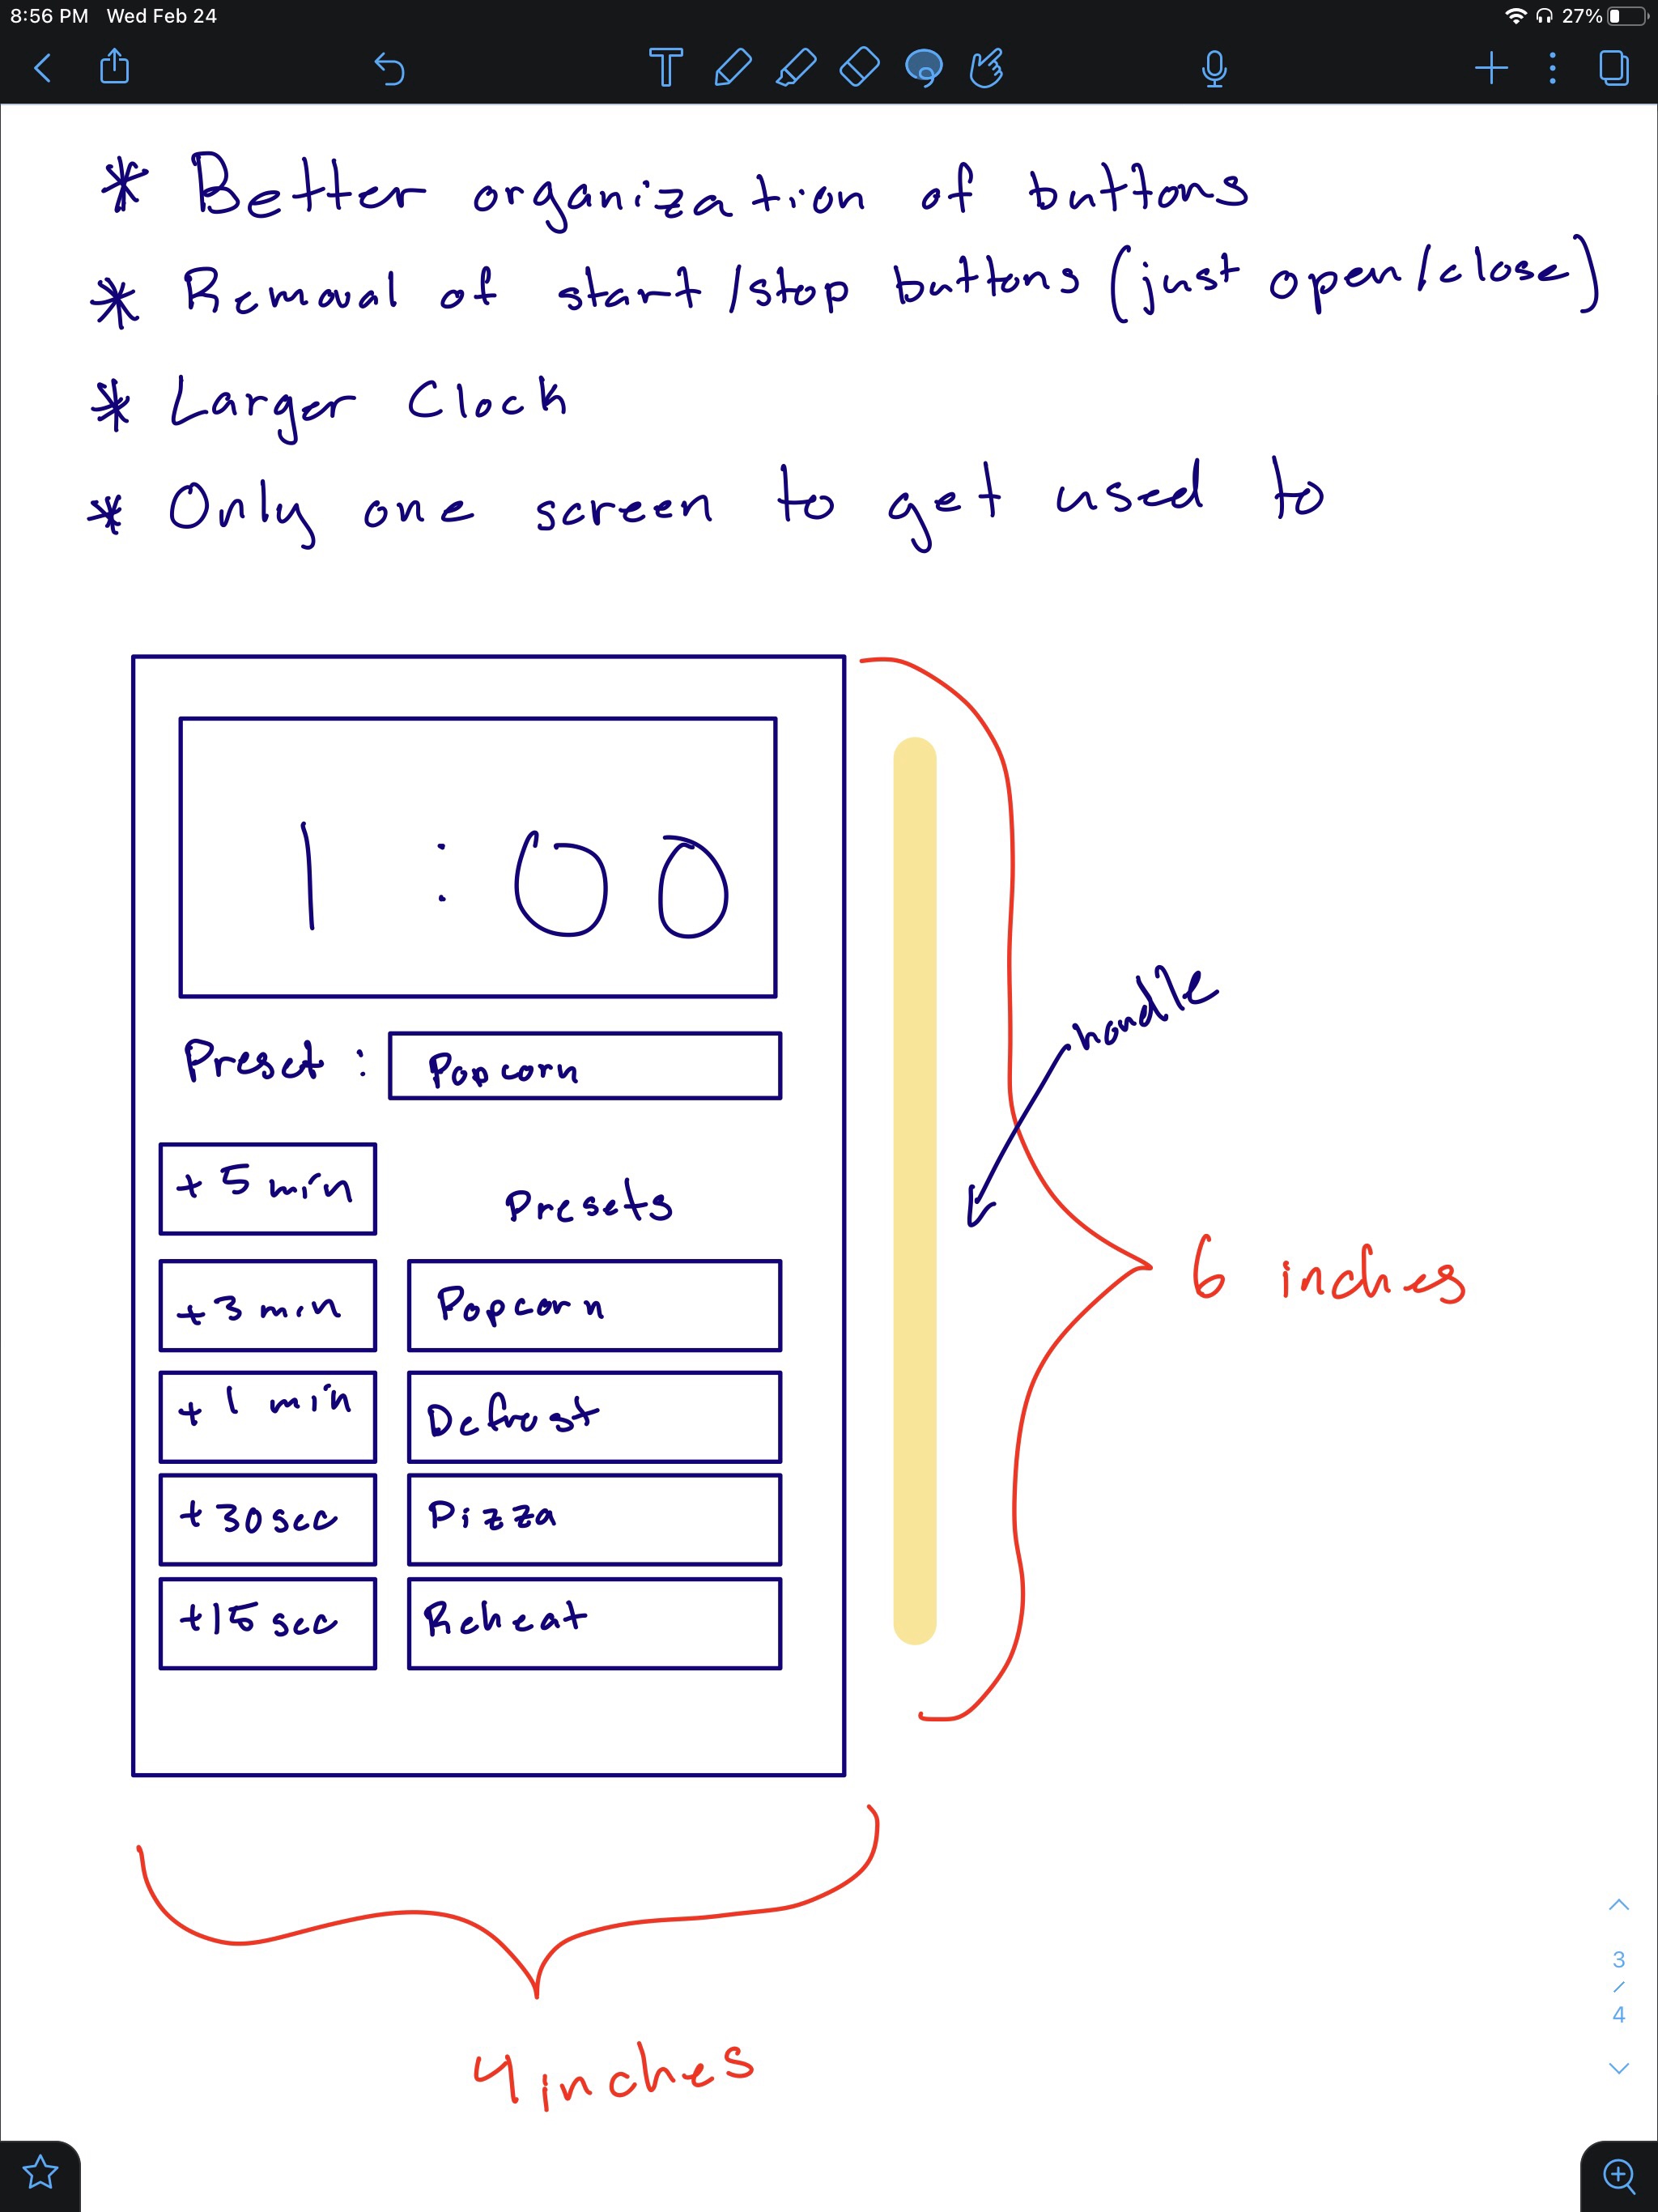 8:56 PM Wed Feb 24 27%
* Better organization of buttons
* Removal of start/stop buttons (just open/close)
* Larger Clock
* Only one screen to get used to
1:00
Preset: Popcorn
+5 min
Presets
+3 min Popcorn
+1 min Defrost
+30sec Pizza
+15 sec Reheat
handle
6 inches
4 inches
3
/
4